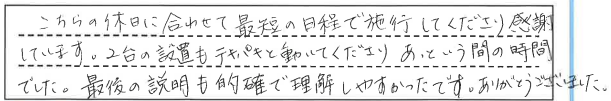 こちらの休日に合わせて最短の日程で施行してくださり感謝
しています。2台の設置もテキパキと動いてくださりあっという間の時間
でした。最後の説明も的確で理解しやすかったです。ありがとうございました。